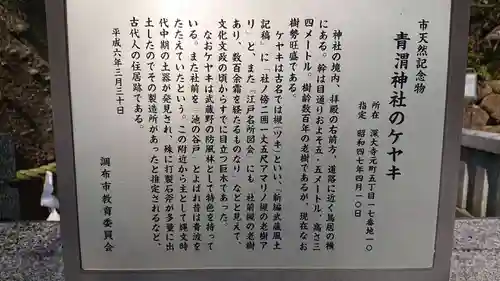 市天然記念物
青渭神社のケヤキ
所在 深大寺元町五丁目一七番地一〇
指定 昭和四七年四月一〇日
神社の境内、拝殿の右前方、道路に近く鳥居の横
にある。幹は目通りおよそ五・五メートル、高さ三
四メートル。樹齢数百年の老樹であるが、現在なお
樹勢旺盛である。
ケヤキは古名では槻（ツキ）といい、「新編武蔵風土
記稿」に「社ノ傍二囲一丈五尺アマリノ槻の老樹ア
リ」と、また「江戸名所図会」にも「社前槻の老樹
あり、数百余霜を経たるものなり」などと見えて、
文化文政の頃からすでに目立つ巨木であった。
なおケヤキは武蔵野の防風林として特色を持って
いる。また社前を「池の谷戸」とよばれ昔は青波を
たたえていたという。この附近から主として縄文時
代中期の土器が発見され、殊に打製石斧が多量に出
土したのでその製造所があったと推定されるなど、
古代人の住居跡である。
平成六年三月三十日
調布市教育委員会